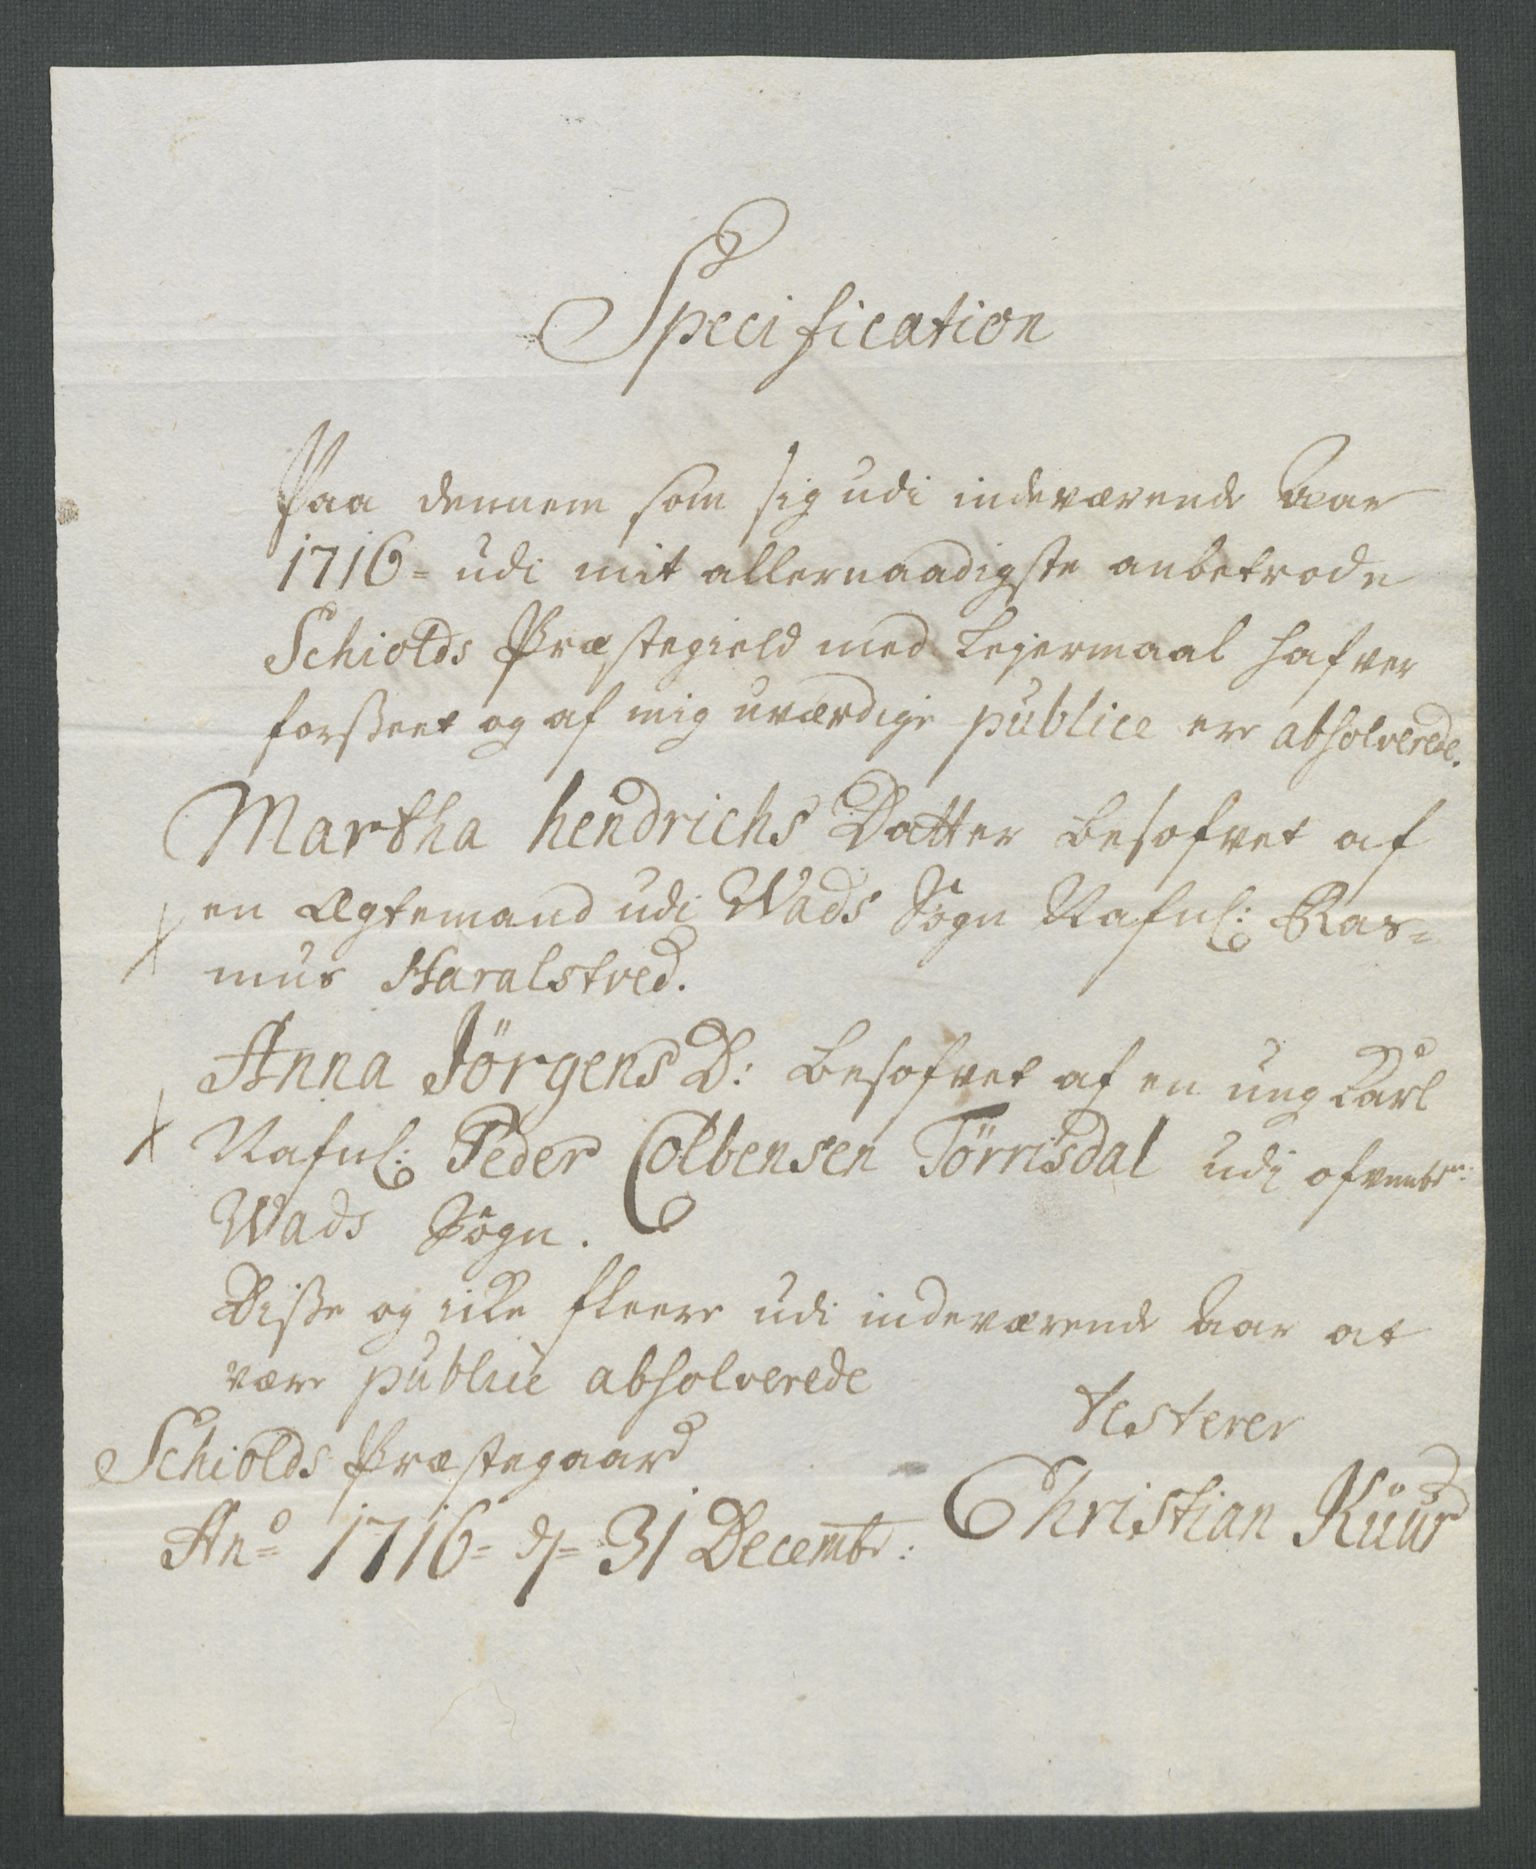 Specification
Paa dennem som sig udi indeværende Aar
1716 = udi mit allernaadigste anbetrode
Schiolds Præstegield med Lejermaal hafver
forßeet og af mig uværdige publice ere absolverede.
Martha Hendrichs Datter besofvet af
en Ægtemand udi Wads Sogn Nafnl: Ras=
mus Haralstved.
Anna Jörgens D: besofvet af en ung Karl
Nafnl: Peder Colbensen Törrisdal udi ofvenbte:
Wads Sogn.
Diße og icke fleere udi indeværende Aar at
være publice absolverede
testerer
Schiolds Præstegaard
Christian Kuur
Ano = 1716 = d = 31 Decembr: